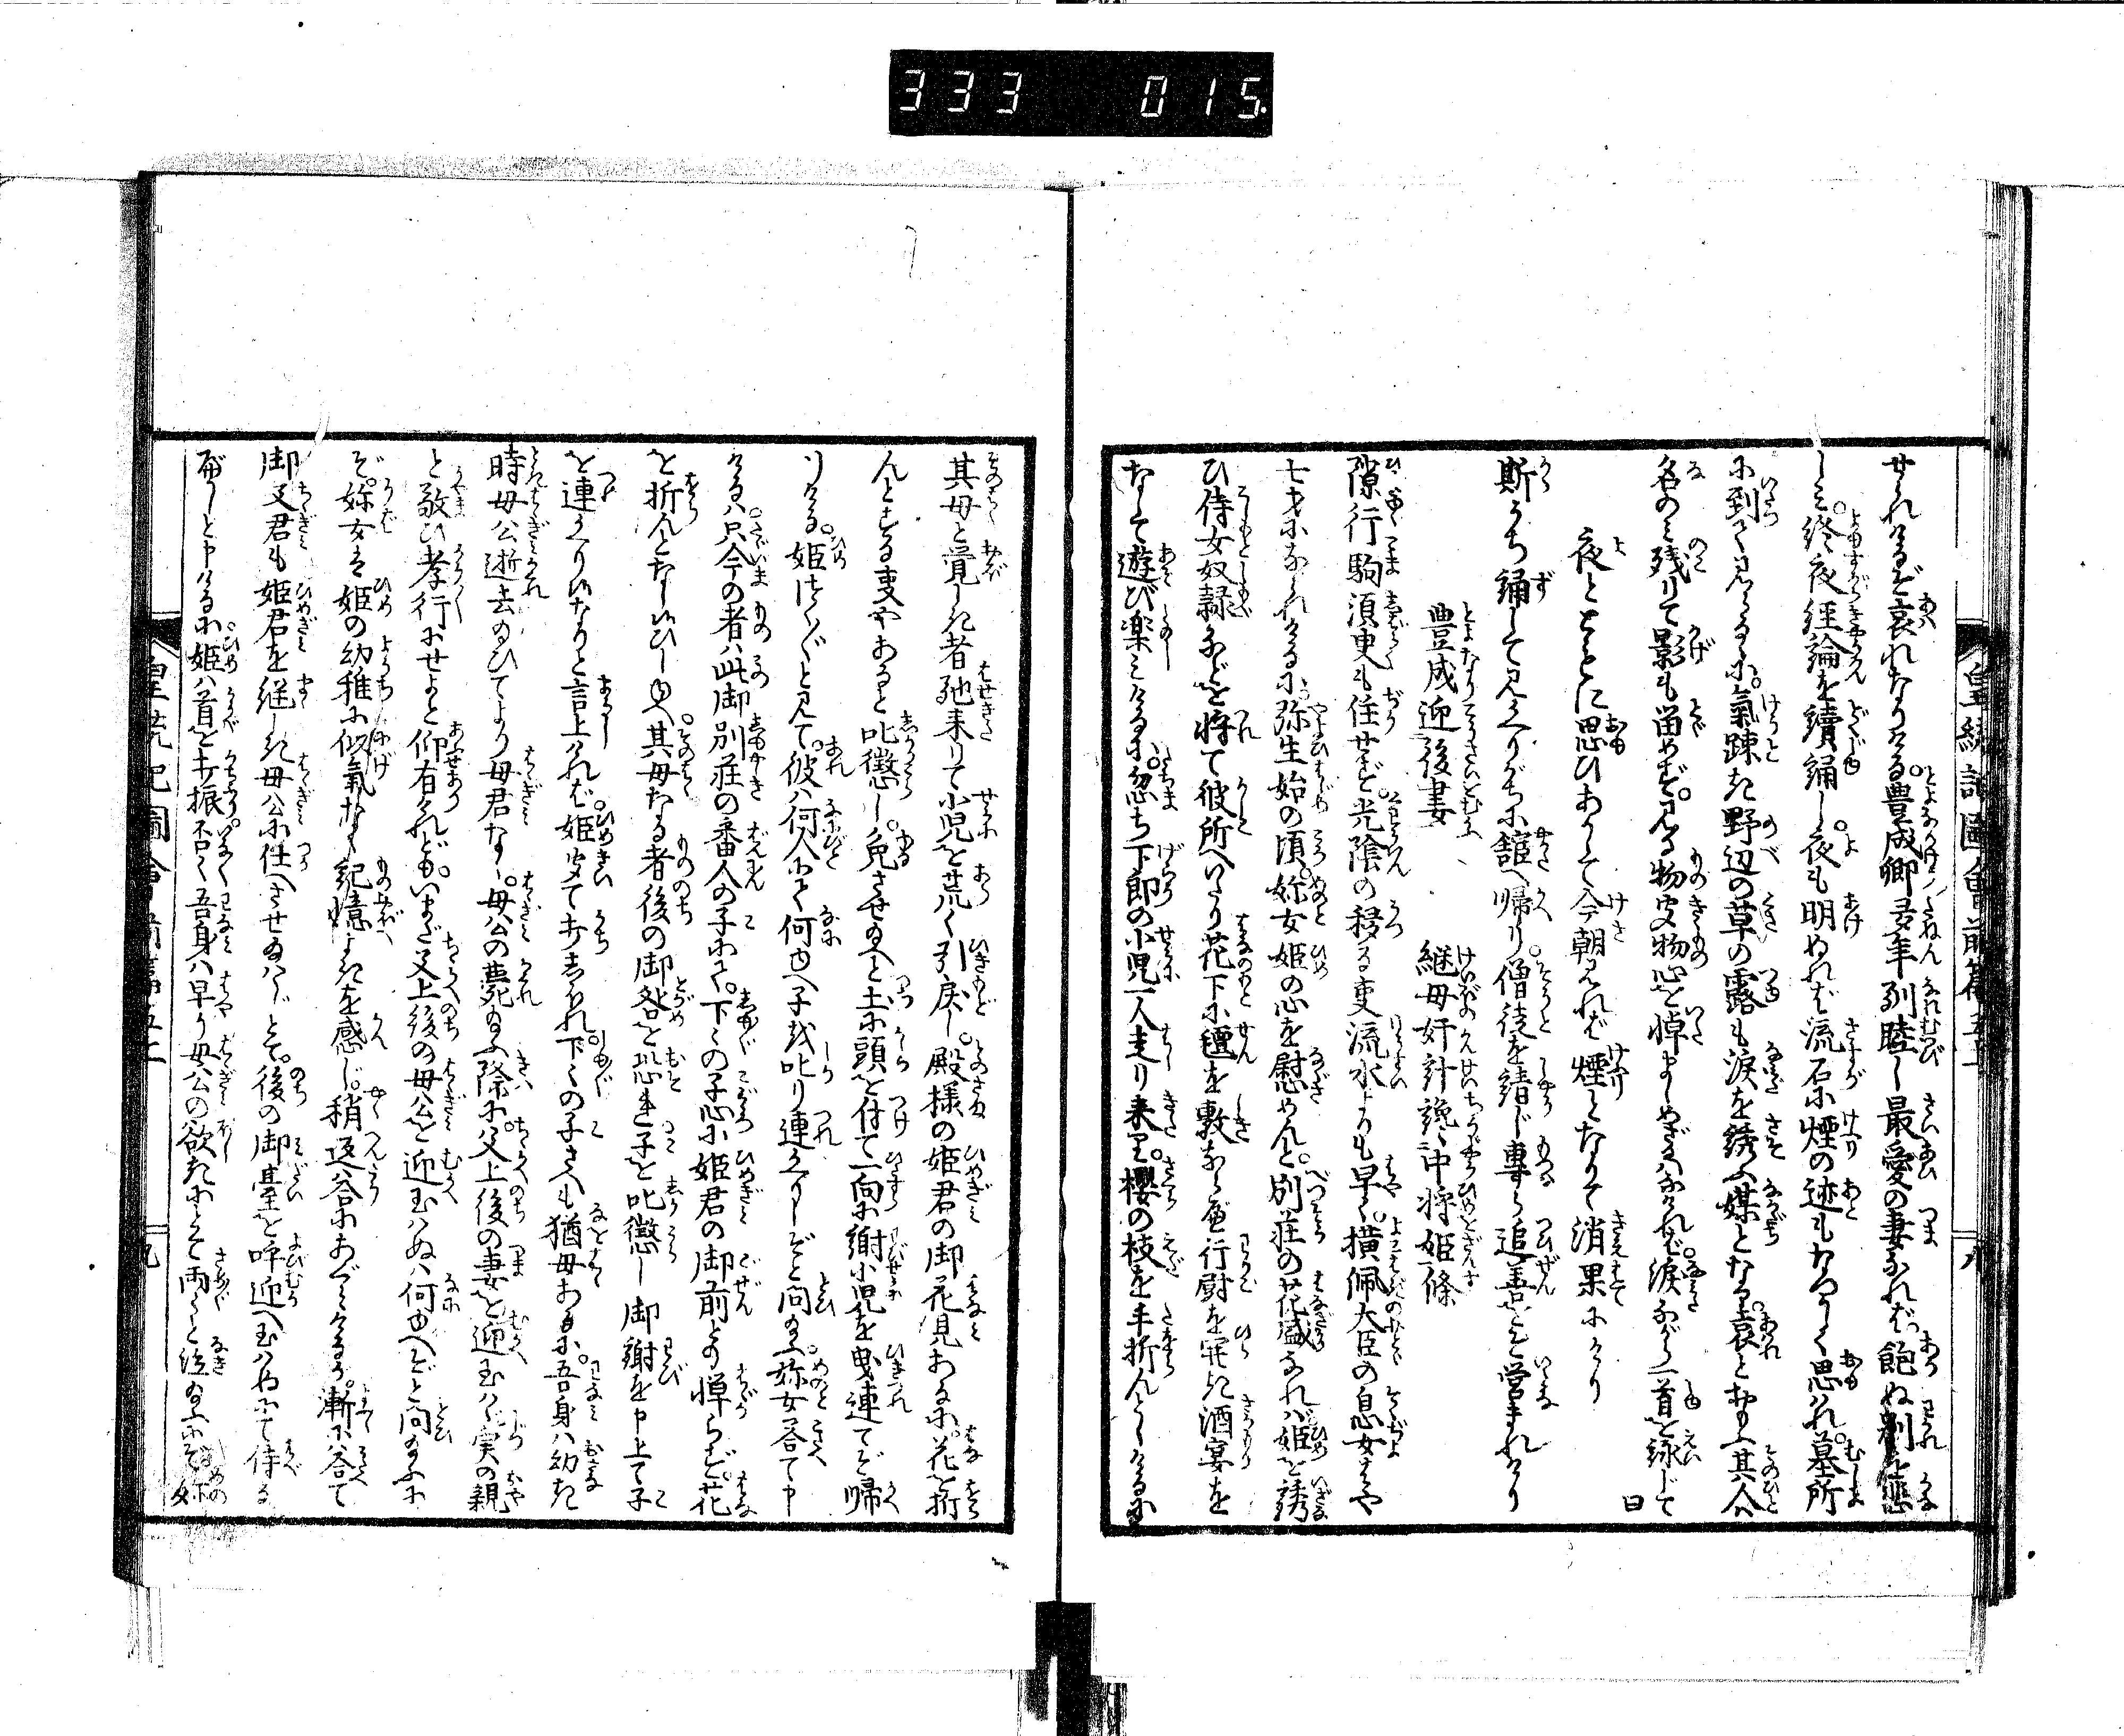 333 015.
せられけるぞ哀れなりける。豊成卿多年列睦し最愛の妻なれば飽ぬ別を悲
しみ。終夜経論を読誦し夜も明ぬれば流石に煙の迹もなつかしく思はれ。墓所
に到て見るに。気疎き野辺の草の露も涙を誘ふ媒となり。哀とおもふ其人は
名のみ残りて影も留めず。見る物聞物心を悼ましめざるはなければ。涙ながら一首を詠じて
曰
夜とともに思ひあかして今朝見れば煙となりて消果にけり
斯うち誦して見かへりがちに館へ帰り。僧徒を請じ専ら追善を営まれけり
豊成迎後妻、　継母奸計讒中将姫條
隙行駒須臾も住せず。光陰の移る事流水よりも早く。横佩大臣の息女はや
七才になられけるに。弥生始の頃。妳女姫の心を慰めんと。別荘の花盛なれば姫を誘
ひ侍女奴隷などを将て彼所へいたり花下に氈を敷ならべ行厨を開き酒宴を
なして遊び楽みけるに。忽ち下郎の小児一人走り来り。櫻の枝を手折んとしけるに
其母と覚しき者馳来りて小児を荒く引戻し。殿様の姫君の御花見あるに。花を折
んとする事やあると叱懲し。免させ給へと土に頭を付て一向に謝小児を曳連てぞ帰
りける。姫つくづくと見て。彼は何人にて何ゆへ子を叱り連かへりしぞと問給ふ。妳女答て申
けるは。只今の者は此御別荘の番人の子にて。下々の子心に姫君の御前との憚らず。花
を折んとなし候ひしゆへ。其母なる者後の御咎を恐れ子を叱懲し御謝を申上て子
を連かへり候なりと言上ければ。姫聞て打しほれ。下々の子さへも猶母あるに。吾身は幼き
時母公逝去給ひてより母君なし。母公の薨給ふ際に。父上後の妻を迎玉はゞ実の親
と敬ひ孝行にせよと仰有けれども。いまだ父上後の母公を迎玉はぬは何ゆへぞと問給ふに
ぞ。妳女は姫の幼稚に似気なく記憶よきを感じ。稍返答にあぐみけるが。漸に答て
御父君も姫君を継しき母公に仕へさせ給はじとて。後の御臺を呼迎へ玉はぬにて侍る
べしと申けるに。姫は首を打振否々吾身は早う母公の欲きにとて雨々と泣給ふにぞ妳